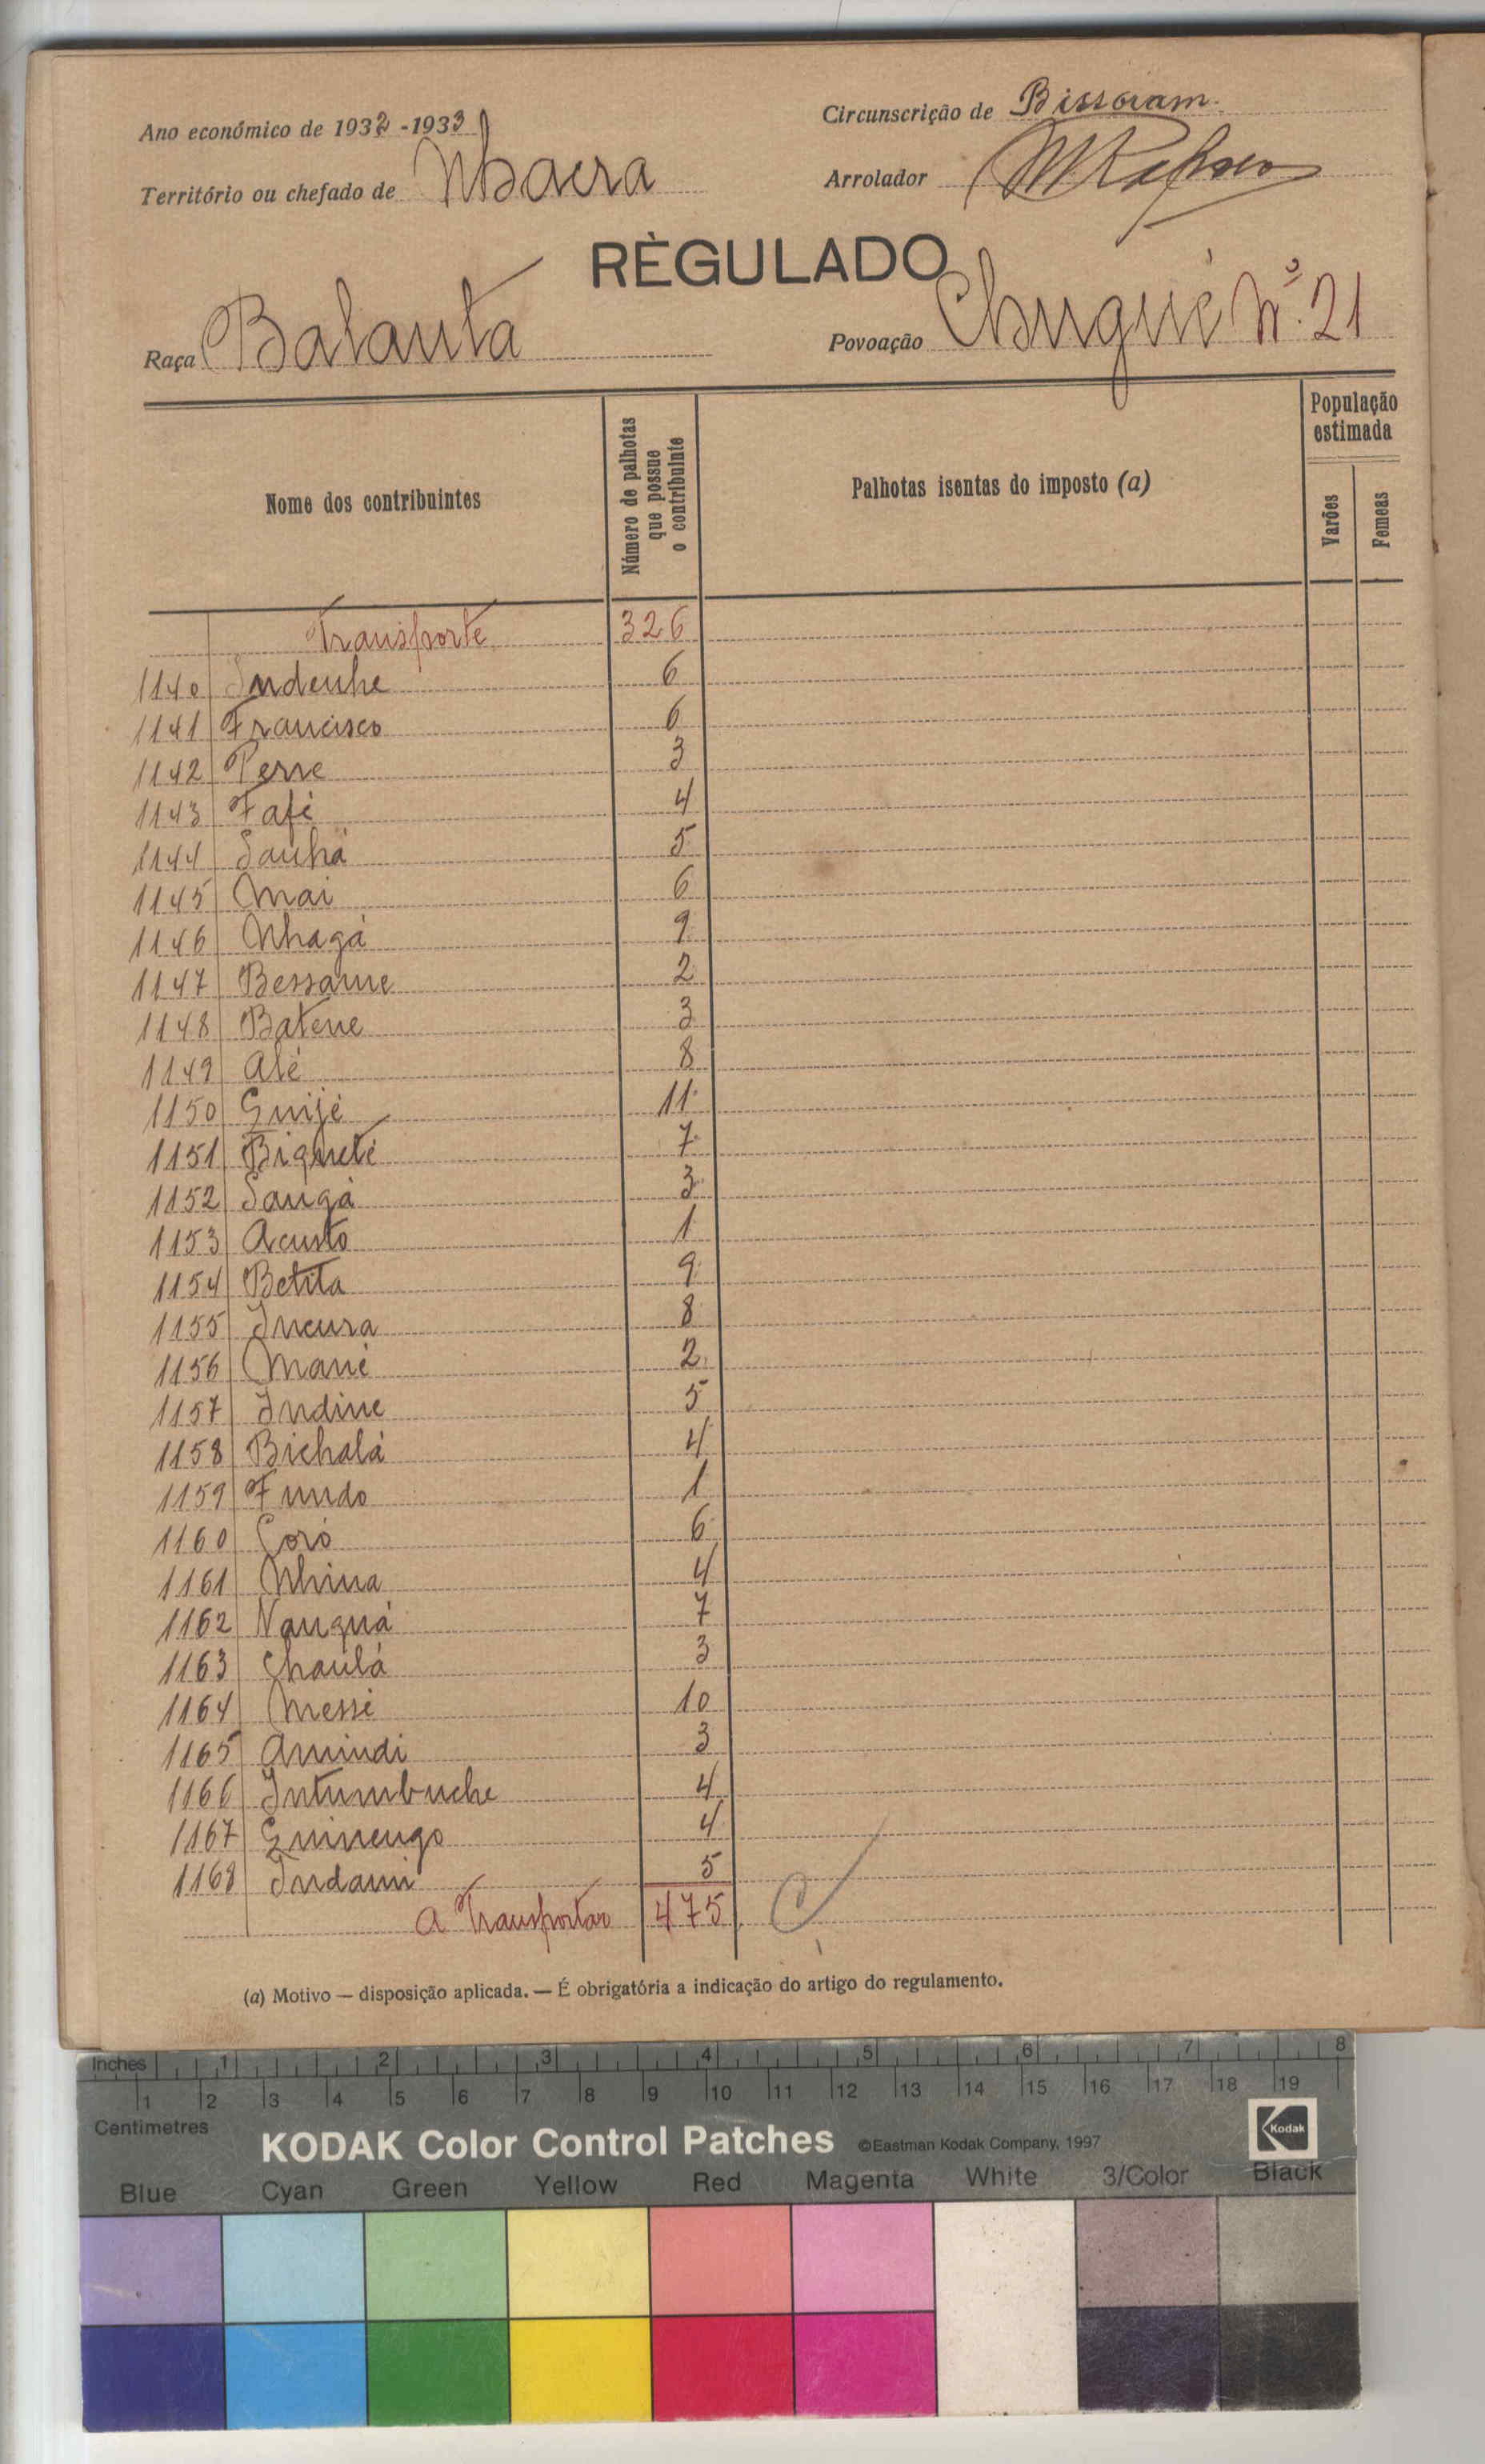 Ano económico de 1932-1933
Circunscrição de Bissoram
Território ou chefado de Nhacra
Arrolador
RÈGULADO
Raça Balanta
Povoação Chugué Nº. 21
Nome dos contribuintes
Número de palhotas que possue o contribuinte
Palhotas isentas do imposto (a)
População estimada
Varões
Femeas
Transporte 326
1140 Indenhe 6
1141 Francisco 6
1142 Perre 3
1143 Fafé 4
1144 Sanhá 5
1145 Mai 6
1146 Nhagá 9
1147 Bessame 2
1148 Batene 3
1149 Alé 8
1150 Guijé 11
1151 Biqueté 7
1152 Sangá 3
1153 Acusto 1
1154 Betita 9
1155 Incura 8
1156 Mané 2
1157 Indine 5
1158 Bichalá 4
1159 Fundo 1
1160 Coró 6
1161 Nhina 4
1162 Nanquá 7
1163 Chaulá 3
1164 Messé 10
1165 Amindi 3
1166 Intumbuche 4
1167 Guinengo 4
1168 Indami 5
A Transportar 475
(a) Motivo — disposição aplicada. — É obrigatória a indicação do artigo do regulamento.
Inches 1 2 3 4 5 6 7 8
1 2 3 4 5 6 7 8 9 10 11 12 13 14 15 16 17 18 19
Centimetres
KODAK Color Control Patches ©Eastman Kodak Company, 1997 Kodak
Blue Cyan Green Yellow Red Magenta White 3/Color Black